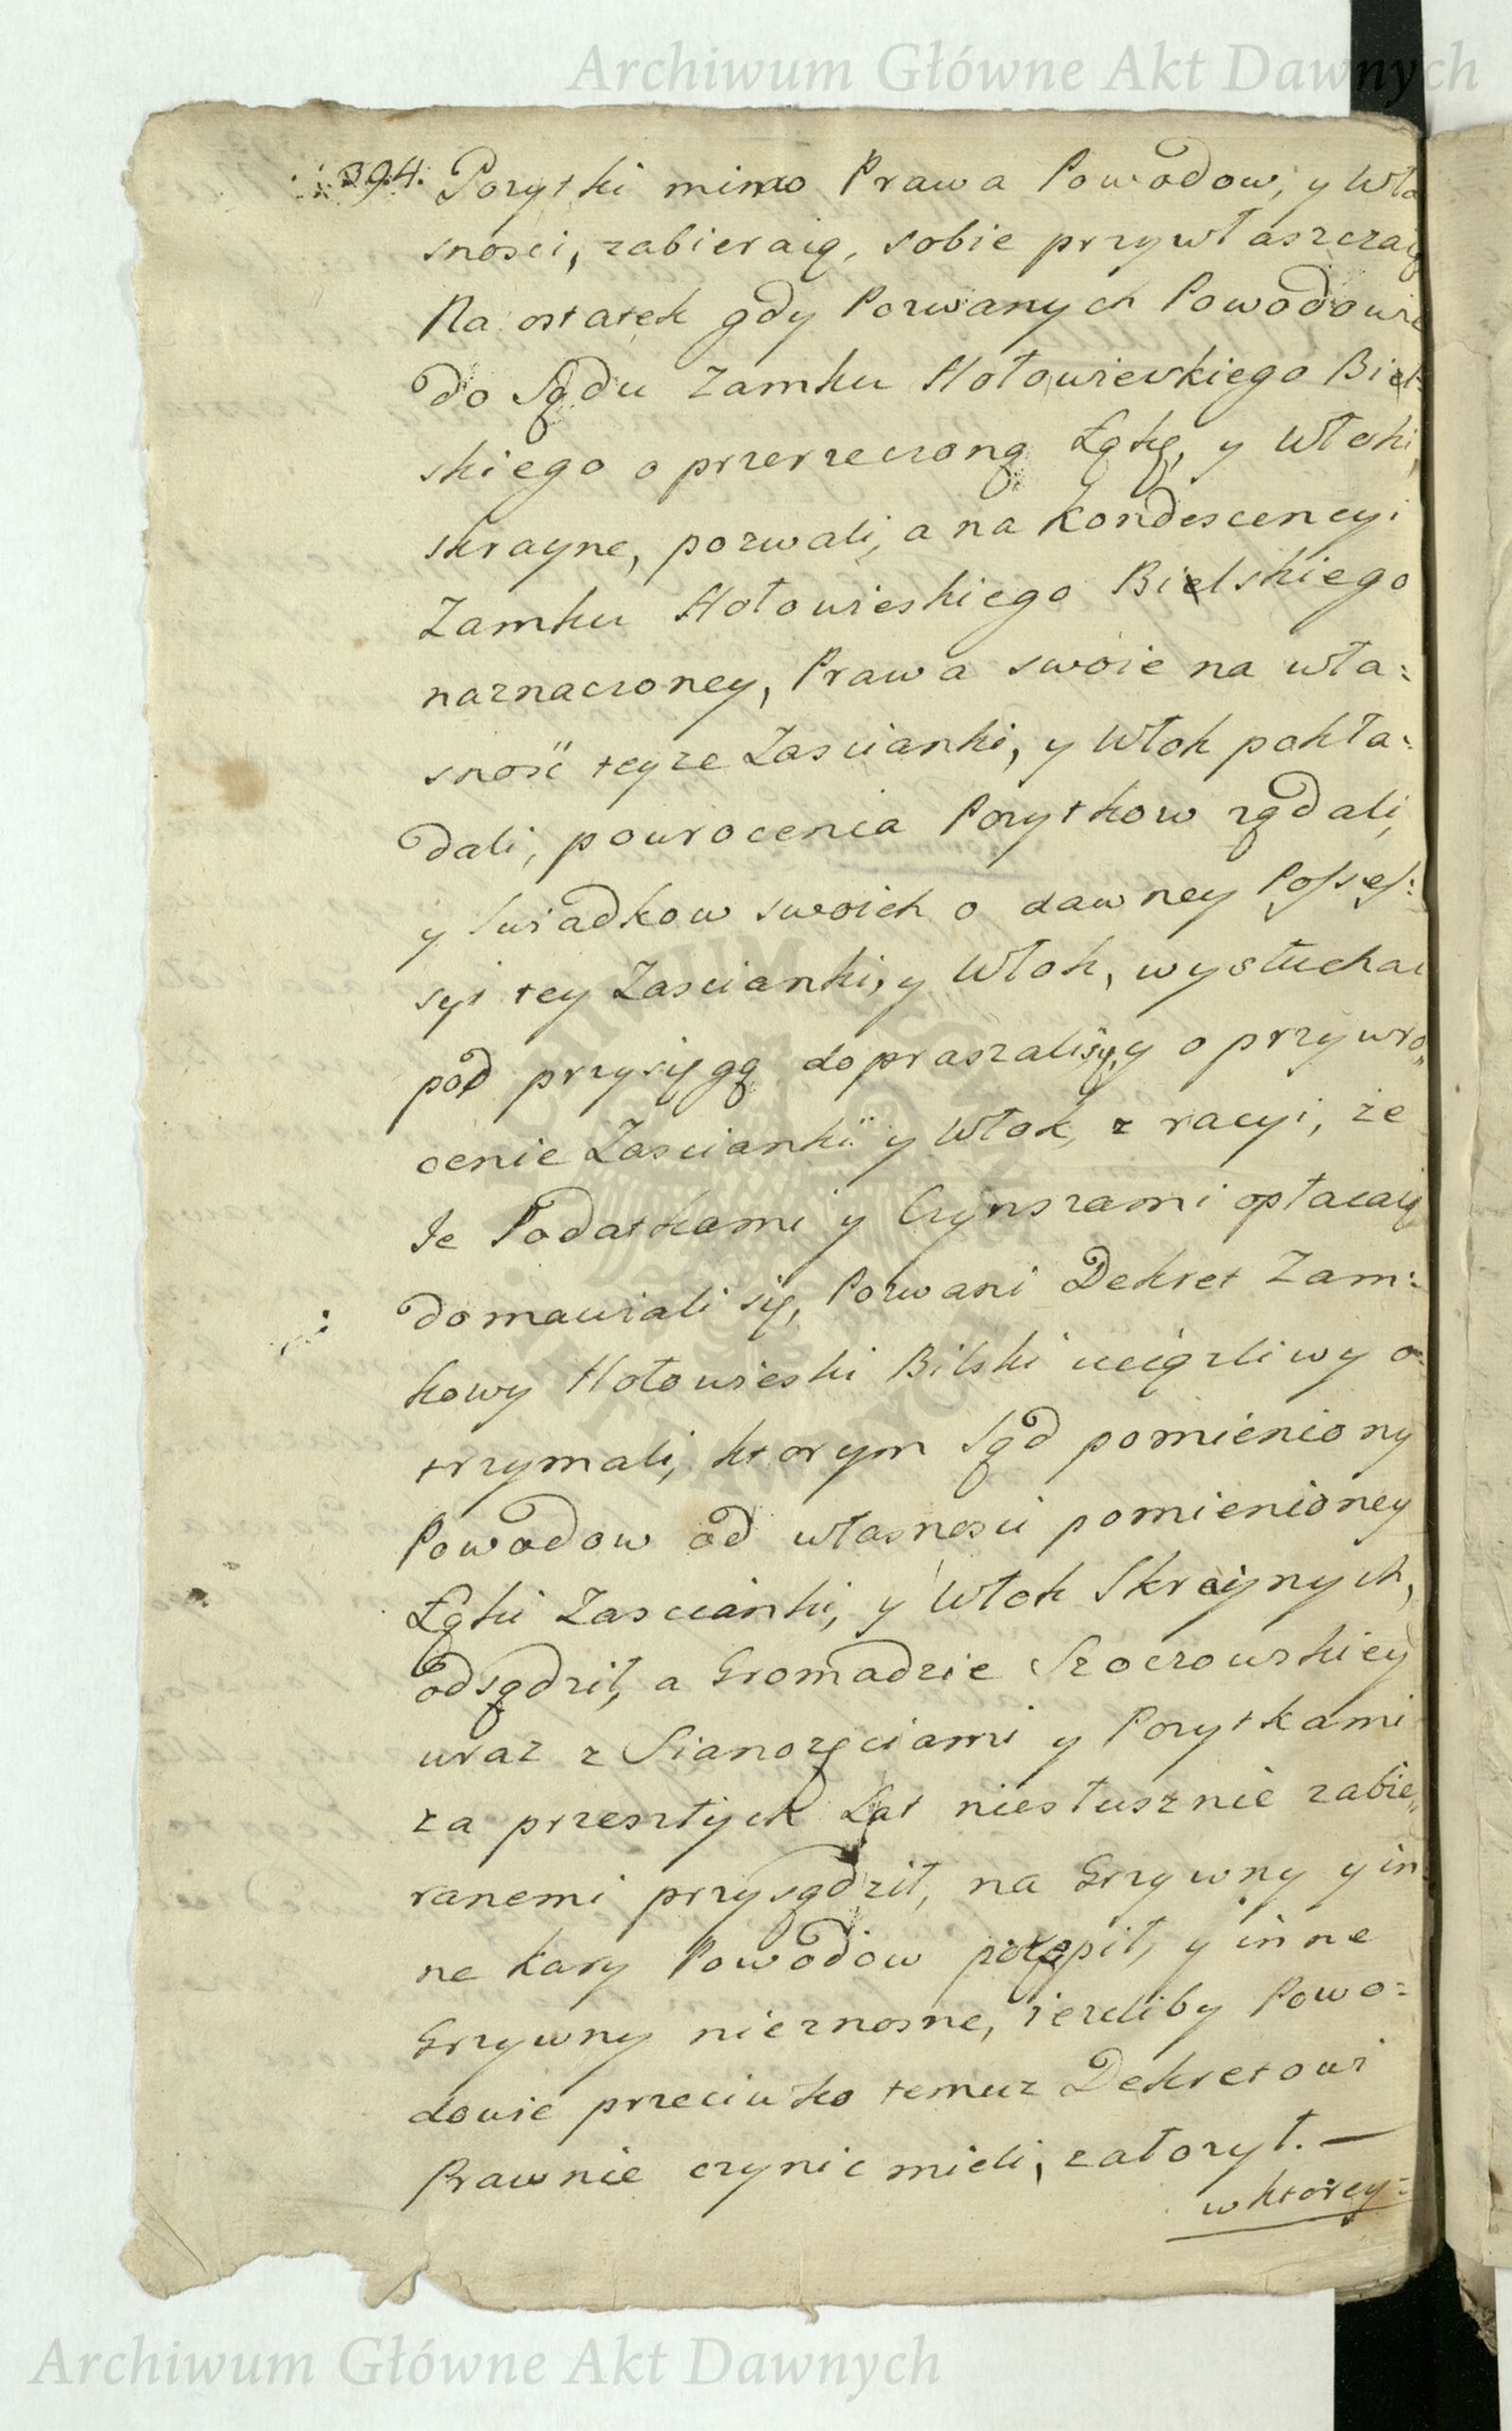 Archiwum Główne Akt Dawnych
394. Pozytki mimo Prawa Powodow, y Wła
snosci, zabieraią, sobie przywłaszczaią
Na ostatek gdy Pozwanych Powodowie
do Sądu Zamku Hołowieskiego Biel:
skiego o przerzeczoną Łąkę, y Włoki
skrayne, pozwali, a na Kondescencyi
Zamku Hołowieskiego Bielskiego
naznaczoney, Prawa swoie na wła:
snośc teyze Zascianki, y Włok pokła:
dali, powrocenia Pozytkow ządali,
y Swiadkow swoich o dawney Possess:
syi tey Zascianki, y Włok, wysłuchac
pod przysięgą dopraszali się, y o przywro„
cenie Zascianki y Włok, z racyi, że
Je Podatkami y Czynszami opłacaią
domawiali się, Pozwani Dekret Zam:
kowy Hołowieski Bilski uciązliwy o:
trzymali, ktorym Sąd pomieniony
Powodow od własnosci pomienioney
Łąki Zascianki, y Włok Skraynych,
odsądził, a Gromadzie Szoczowskiey
wraz z Sianozęciami y Pozytkami
za przeszłych Lat niesłusznie zabie„
ranemi przysądził, na Grzywny y in
ne kary Powodow potępił, y inne
Grzywny nieznosne, iezeliby Powo:
dowie przeciwko temuz Dekretowi
Prawnie czynic mieli, załozył. —
w ktorey:
Archiwum Główne Akt Dawnych